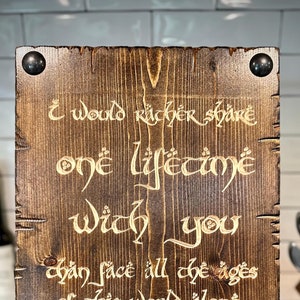 I would rather share
one lifetime
with you
than face all the ages
of this world alone